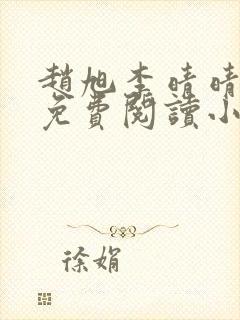 趙旭李晴晴
免費閱讀小
徐娟